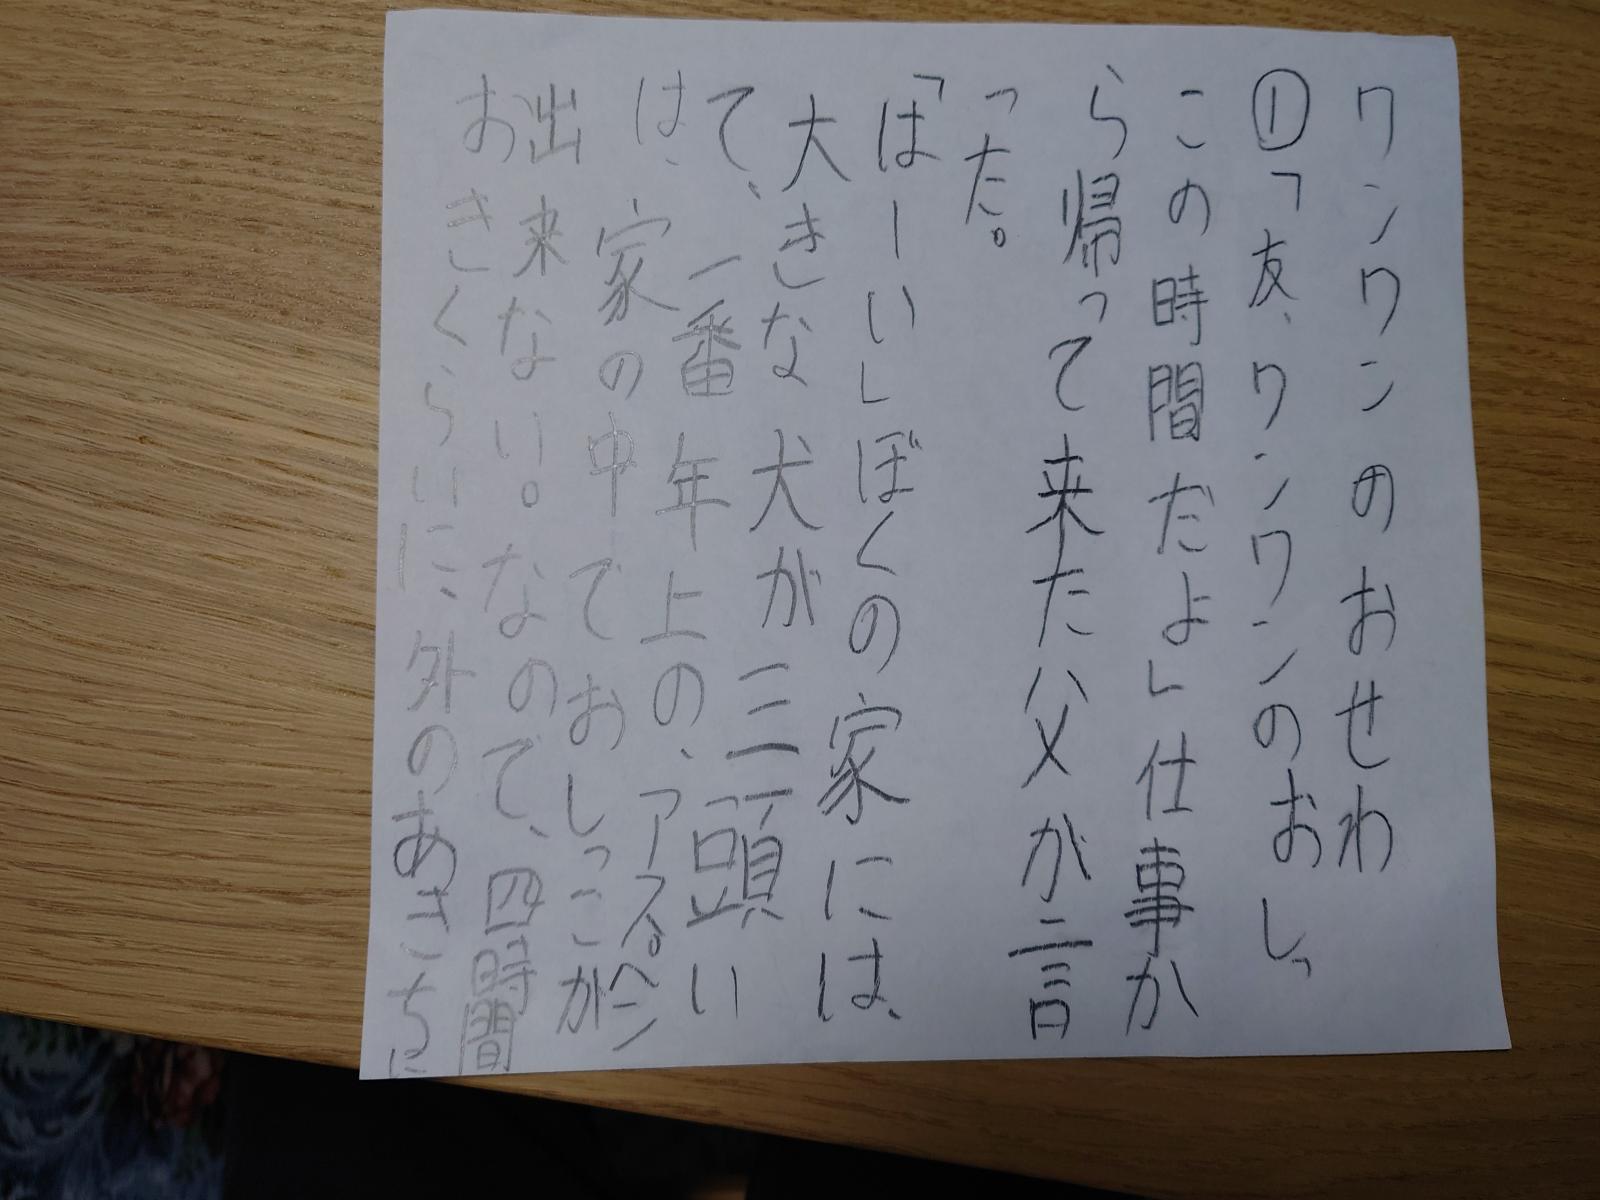 ワンワンのおせわ
①「友、ワンワンのおしっ
この時間だよ」仕事か
ら帰って来た父が言
った。
「はーい」ぼくの家には、
大きな犬が三頭い
て、一番年上の、アスペン
は、家の中でおしっこが
出来ない。なので、四時間
おきくらいに外のあきちに